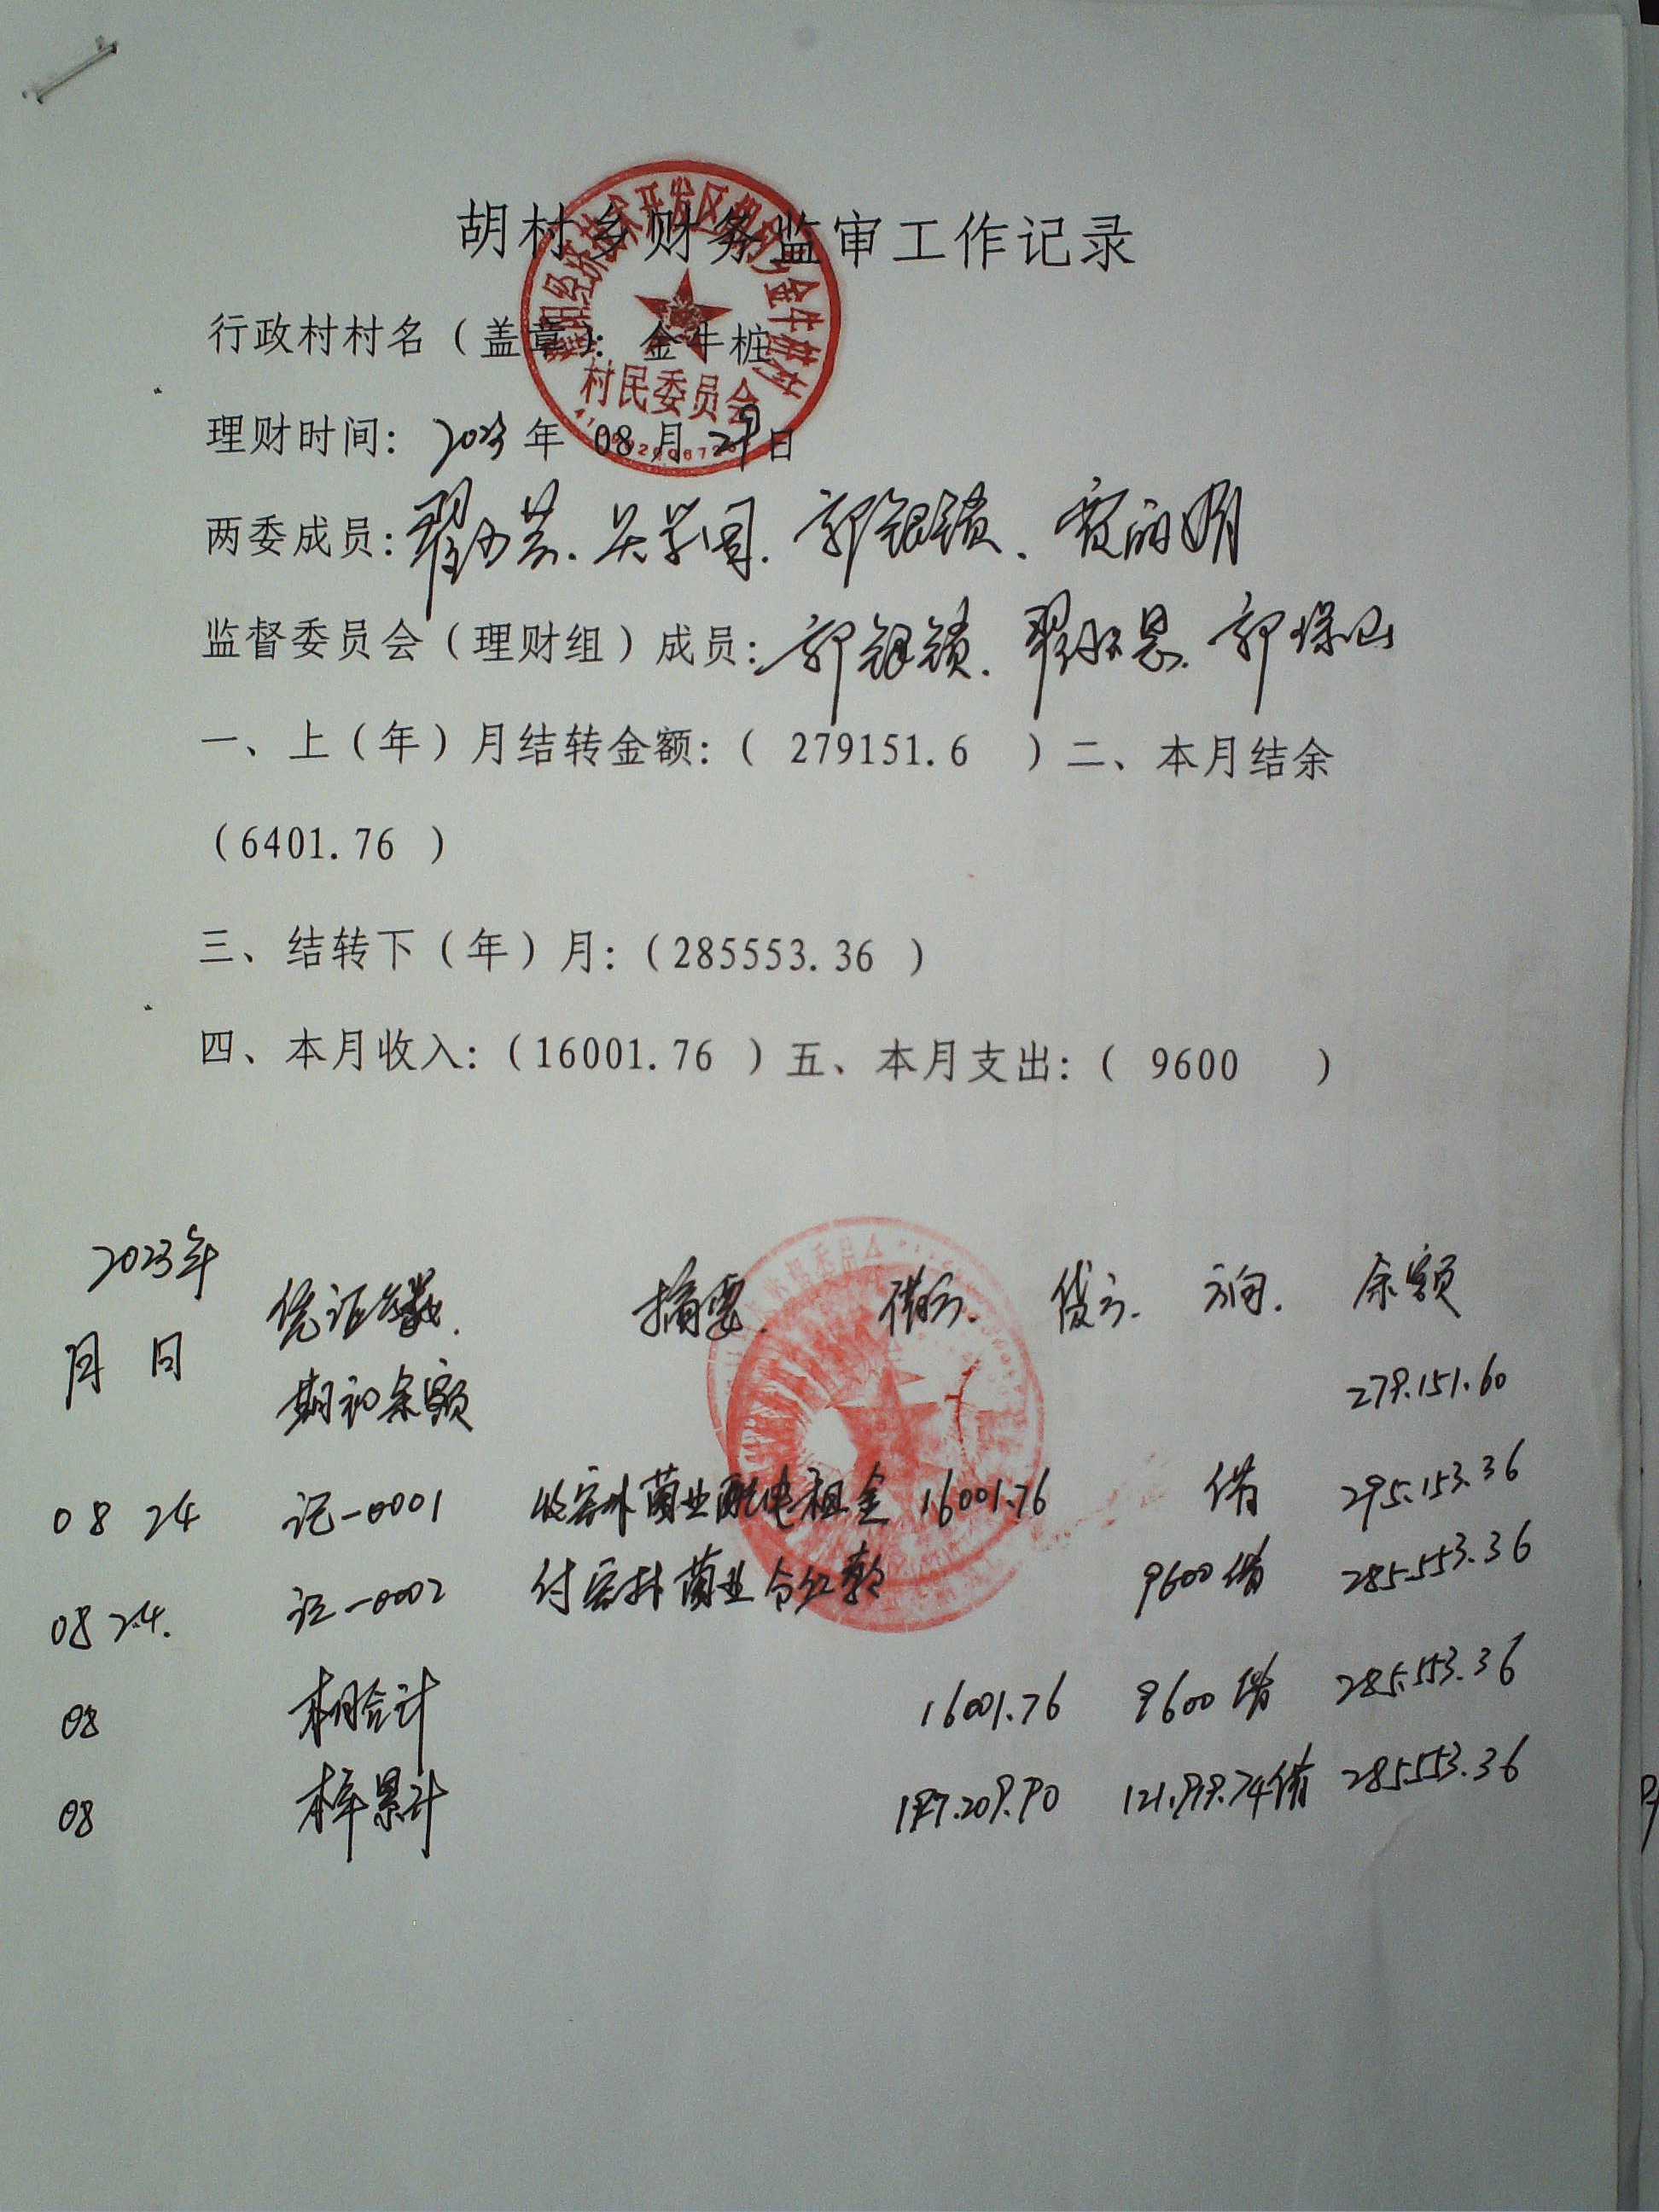 胡村乡财务监审工作记录
行政村村名（盖章）: 金牛桩
村民委员会
理财时间: 2023 年 08 月 29 日
两委成员: 郭银锁
监督委员会（理财组）成员: 郭银锁 郭保山
一、上（年）月结转金额:（ 279151.6 ）二、本月结余
（6401.76 ）
三、结转下（年）月:（285553.36 ）
四、本月收入:（16001.76 ）五、本月支出:（ 9600 ）
2023年
月 日 凭证号数. 摘要. 借方. 贷方. 方向. 余额
期初余额 279.151.60
08 24 记-0001 收 菌业配电租金 16001.76 借 295.153.36
08 24. 记-0002 付 菌业 9600 借 285.553.36
08 本月合计 16001.76 9600 借 285.553.36
08 本年累计 借 285.553.36